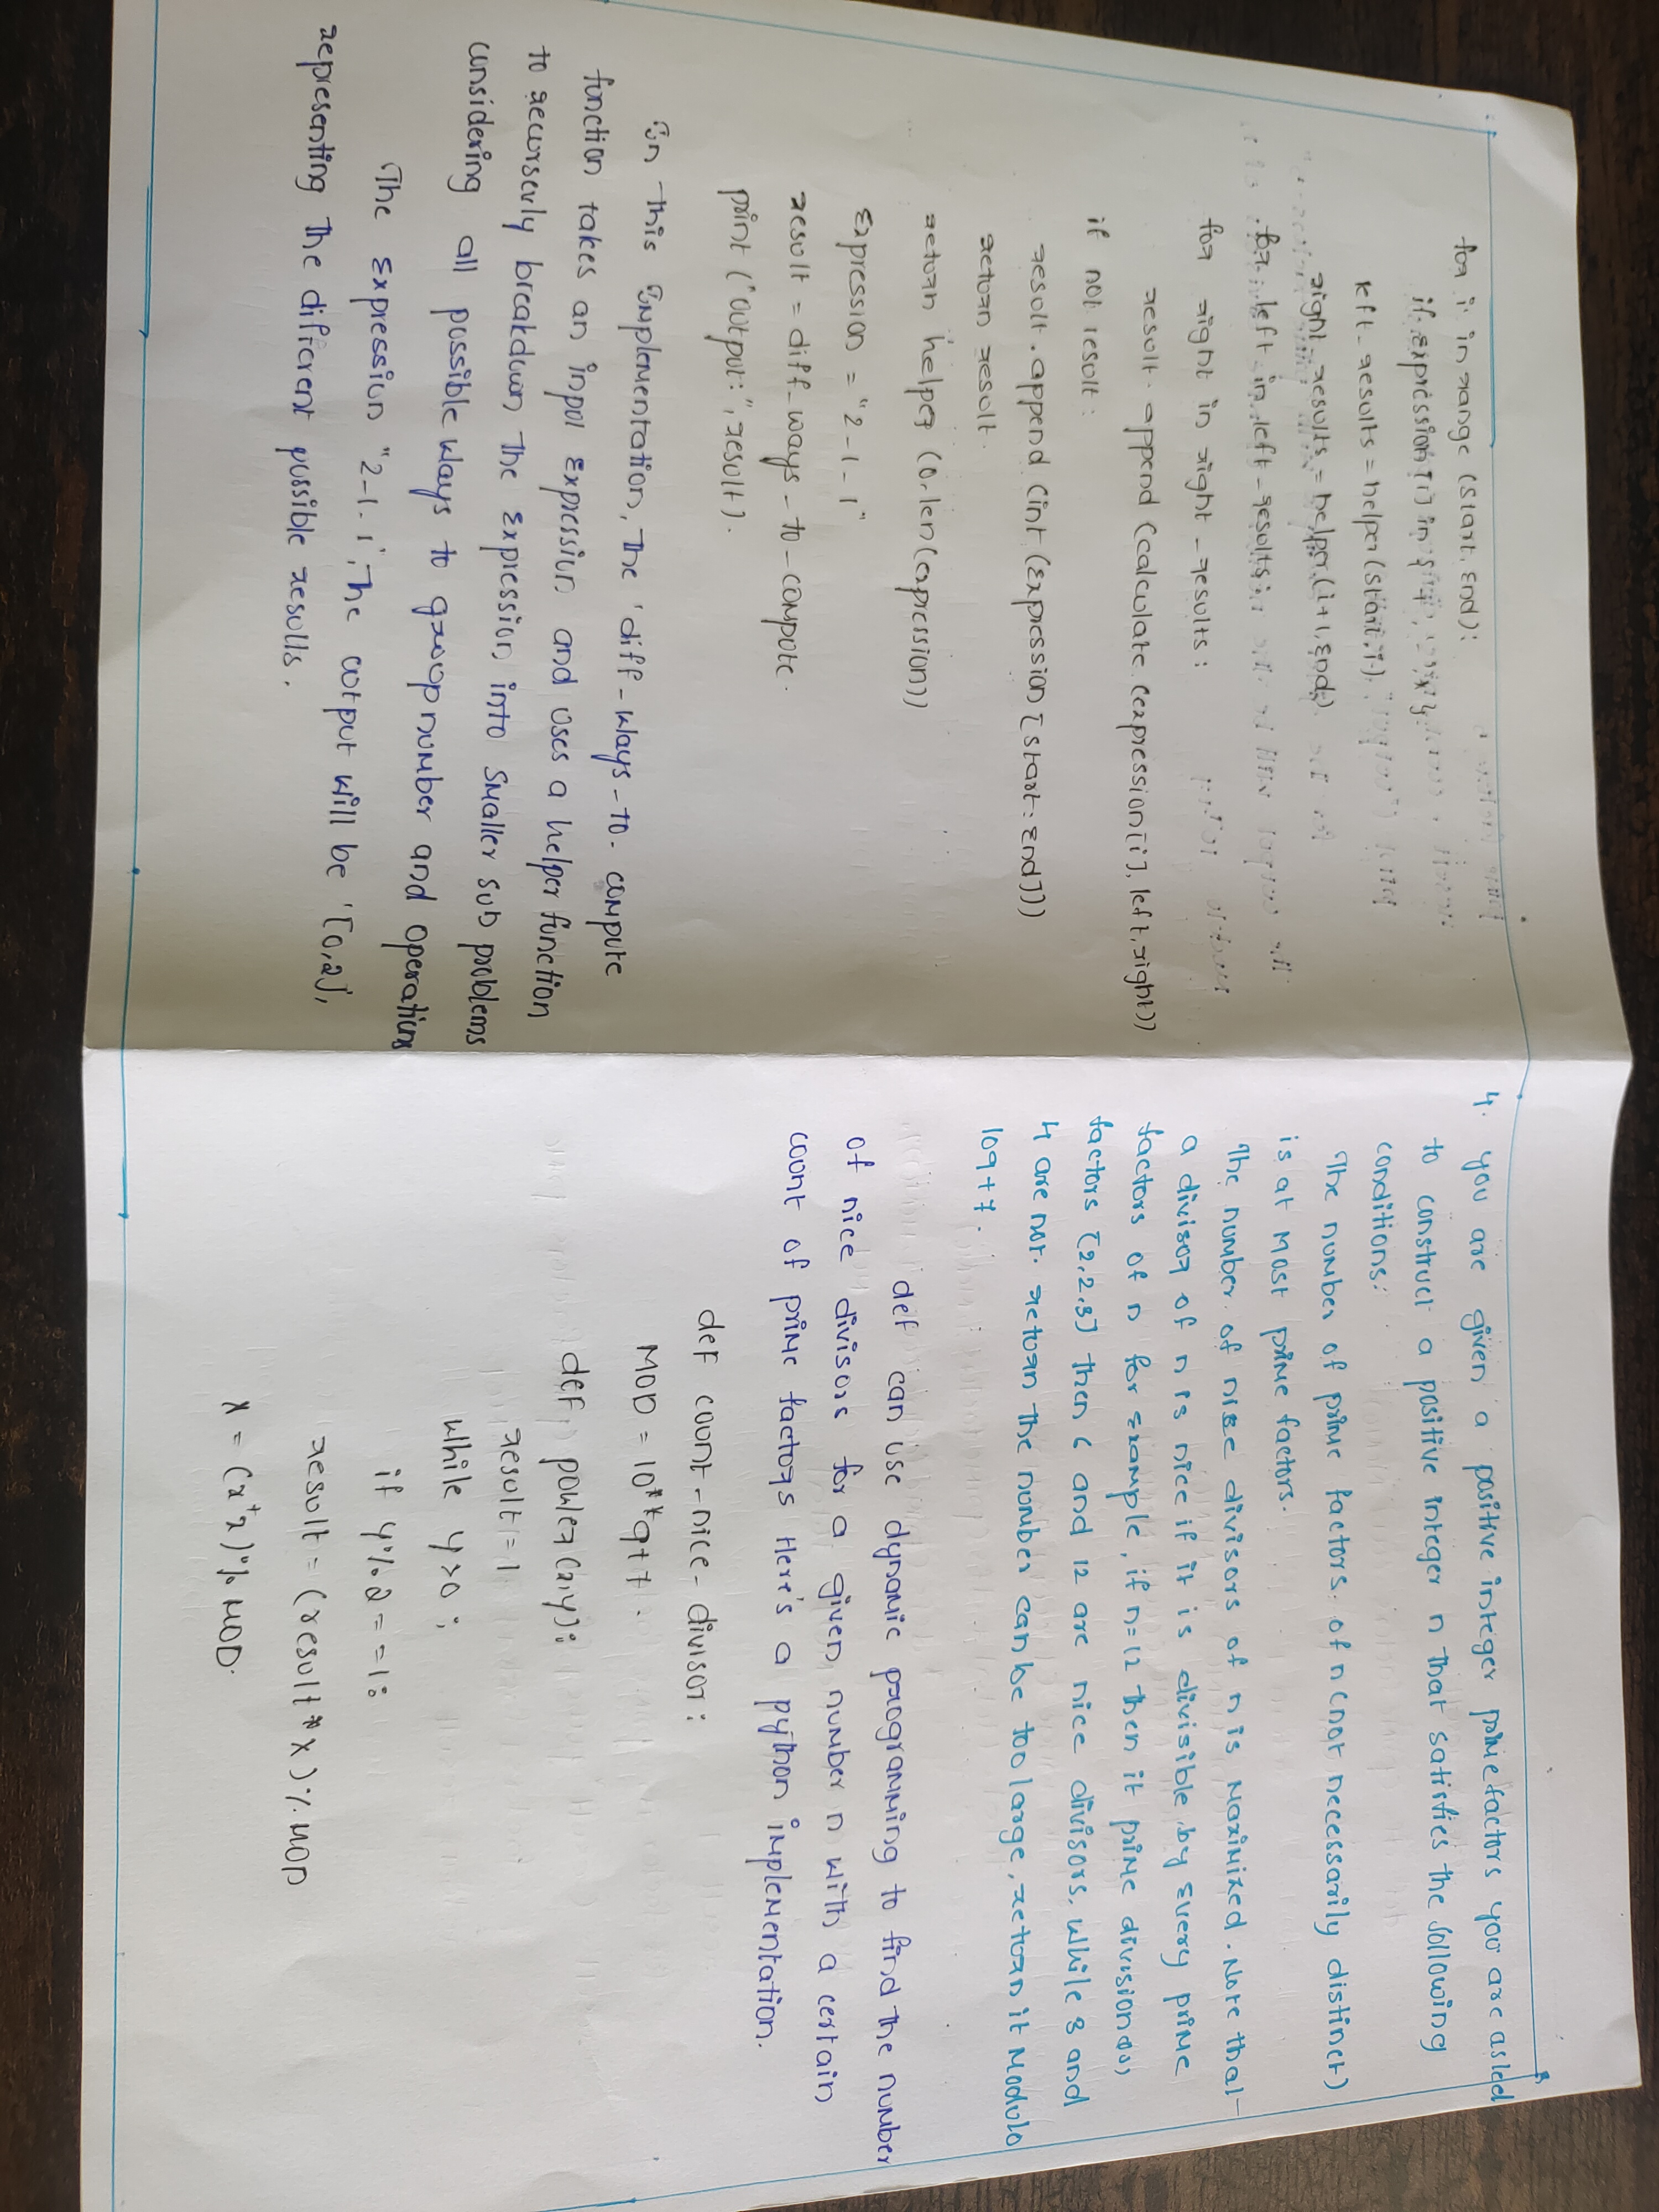 for i in range (start, End):
if Expression [i] in
left_results = helper (start, i).
right_results = helper (i+1, End)
for left in left_results:
for right in right_results:
result. append (calculate (expression[i], left, right))
if not result:
result. append (int (Expression [start: End]))
return result.
return helper (0, len(expression))
Expression = "2-1-1"
result = diff_ways_to_compute.
print ("output:", result).
In This Implementation, The 'diff_ways_to_compute
function takes an input Expression and uses a helper function
to recursevly breakdown The Expression into smaller sub problems
considering all possible ways to group number and operations
The Expression "2-1-1", The output will be '[0,2]',
representing The different possible results.
4. you are given a positive integer prime factors you are asked
to construct a positive integer n that satisfies the following
conditions:
The number of prime factors of n (not necessarily distinct)
is at most prime factors.
The number of nice divisors of n is Maximized. Note that
a divisor of n is nice if it is divisible by Every prime
factors of n for Example, if n=12 then it prime
factors [2,2,3] then 6 and 12 are nice divisors, while 3 and
4 are not. return the number can be too large, return it Modulo
109+7.
def can use dynamic programming to find the number
of nice divisors for a given number n with a certain
count of prime factors Here's a python implementation.
def count-nice-divisor:
MOD = 10**9+7.
def power (x,y):
result = 1
while y>0:
if y%2 == 1:
result = (result * x) % MOD
x = (x*x) % MOD.